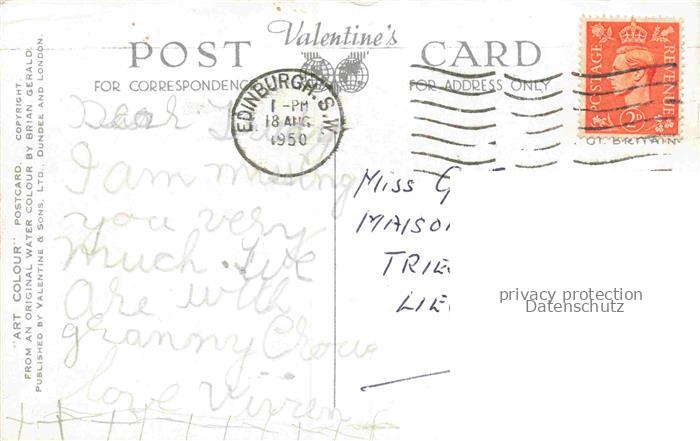 POST Valentine's CARD
FOR CORRESPONDENCE FOR ADDRESS ONLY
"ART COLOUR" POSTCARD. COPYRIGHT.
FROM AN ORIGINAL WATER COLOUR BY BRIAN GERALD.
PUBLISHED BY VALENTINE & SONS, LTD., DUNDEE AND LONDON.
EDINBURGH. S.W.
1 - PM
18 AUG
1950
POSTAGE REVENUE
2D
GT. BRITAIN
Dear
I am missing
you very
much. We
are with
granny Crow
love Vivien
Miss G
MAISO
TRIE
LIE
privacy protection
Datenschutz